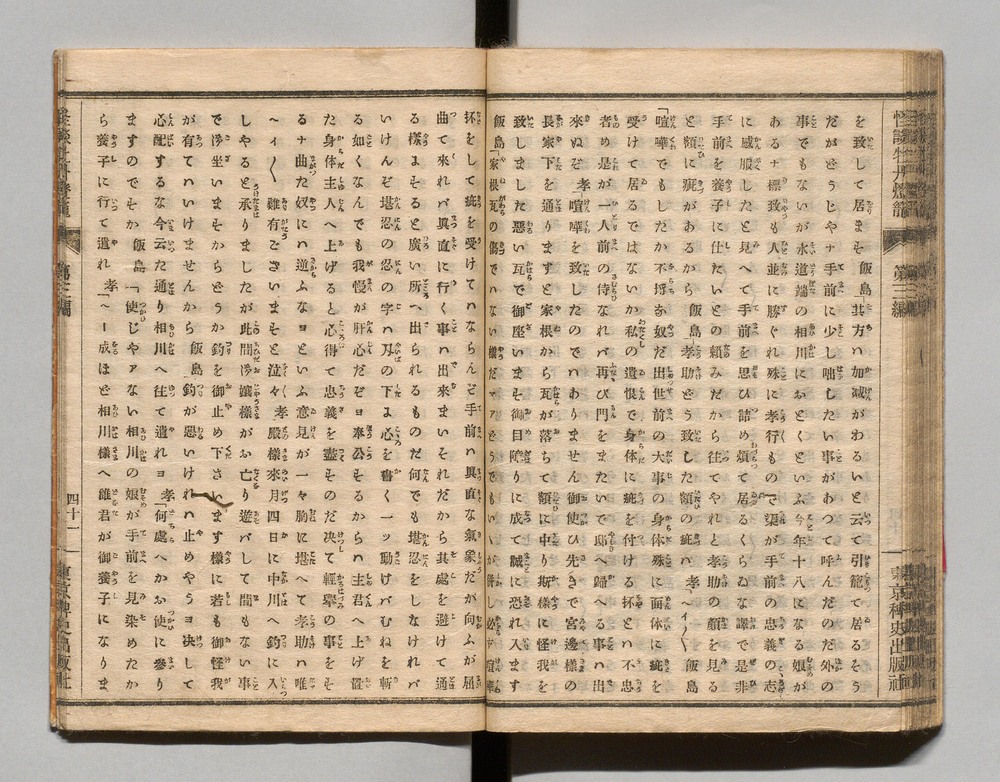 を致して居ます飯島其方ハ加減がわるいと云て引籠で居るそう
だがどうじやナ手前に少し咄したい事があつて呼んだのだ外の
事でもないが水道端の相川におとくといふ今年十八になる娘が
あるナ標致も人並に勝ぐれ殊に孝行もので渠が手前の忠義の志
に感服したと見へて手前を思ひ詰め煩て居るくらゐな譯で是非
手前を養子に仕たいとの頼みだから往てやれと孝助の顔を見る
と額に疵があるから飯島「孝助どう致した額の疵ハ孝「ヘイ〱飯島
「喧嘩でもしたか不埒な奴だ出世前の大事の身体殊に面体に疵を
受けて居るではないか私の遺恨で身体に疵を付ける抔とハ不忠
者め是が一人前の侍なれバ再び門をまたいで邸へ歸へる事ハ出
來ぬぞ孝「喧嘩を致したのでハありません御使ひ先きで宮邊様の
長家下を通りますと家根から瓦が落ちて額に中り斯様に怪我を
致しました悪い瓦で御座います御目障りに成て誠に恐れ入ます
飯島「家根瓦の傷でハない様だ
抔をして疵を受けてハならんぞ手前ハ眞直な氣象だが向ふが屈
曲て來れバ眞直に行く事ハ出來まいそれだから其處を避けて通
る様にすると廣い所へ出られるものだ何でも堪忍をしなけれバ
いけんぞ堪忍の忍の字ハ刄の下に心を書く一ツ動けバむねを斬
る如くなんでも我慢が肝心だぞヨ奉公するからハ主君へ上げ置
た身体主人へ上げると心得て忠義を盡すのだ决て輕擧の事をす
るナ曲た奴にハ逆ふなヨといふ意見が一々胸に堪へて孝助ハ唯
ヘイ〱難有ございますと泣々孝「殿様來月四日に中川へ釣に入
しやると承りましたが此間お嬢様がお亡り遊バして間もない事
で御坐いますからどうか釣を御止め下さいます様に若も御怪我
が有てハいけませんから飯島「釣が悪いけれハ止めやうヨ决して
心配するな今云た通り相川へ往て遣れヨ孝「何處へかお使に參り
ますのですか飯島「使じやアない相川の娘が手前を見染めたか
ら養子に行て遣れ孝「ヘー成ほど相川様へ誰君が御養子になりま
怪談牡丹燈籠
第三編
東京稗史出版社
四十一